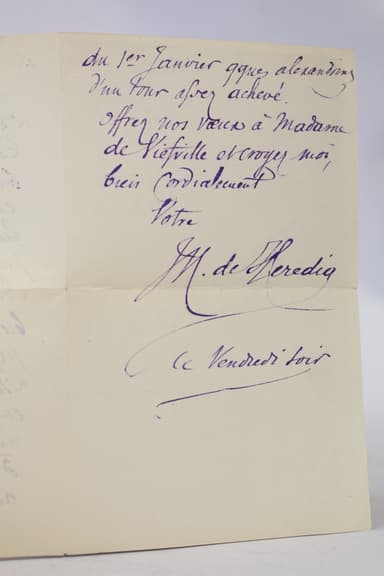 du 1er Janvier qques alexandrins
d'un tour assez achevé.
Offrez nos vœux à Madame
de Viefville et croyez moi,
bien cordialement
Votre
JM. de Heredia
Ce Vendredi soir